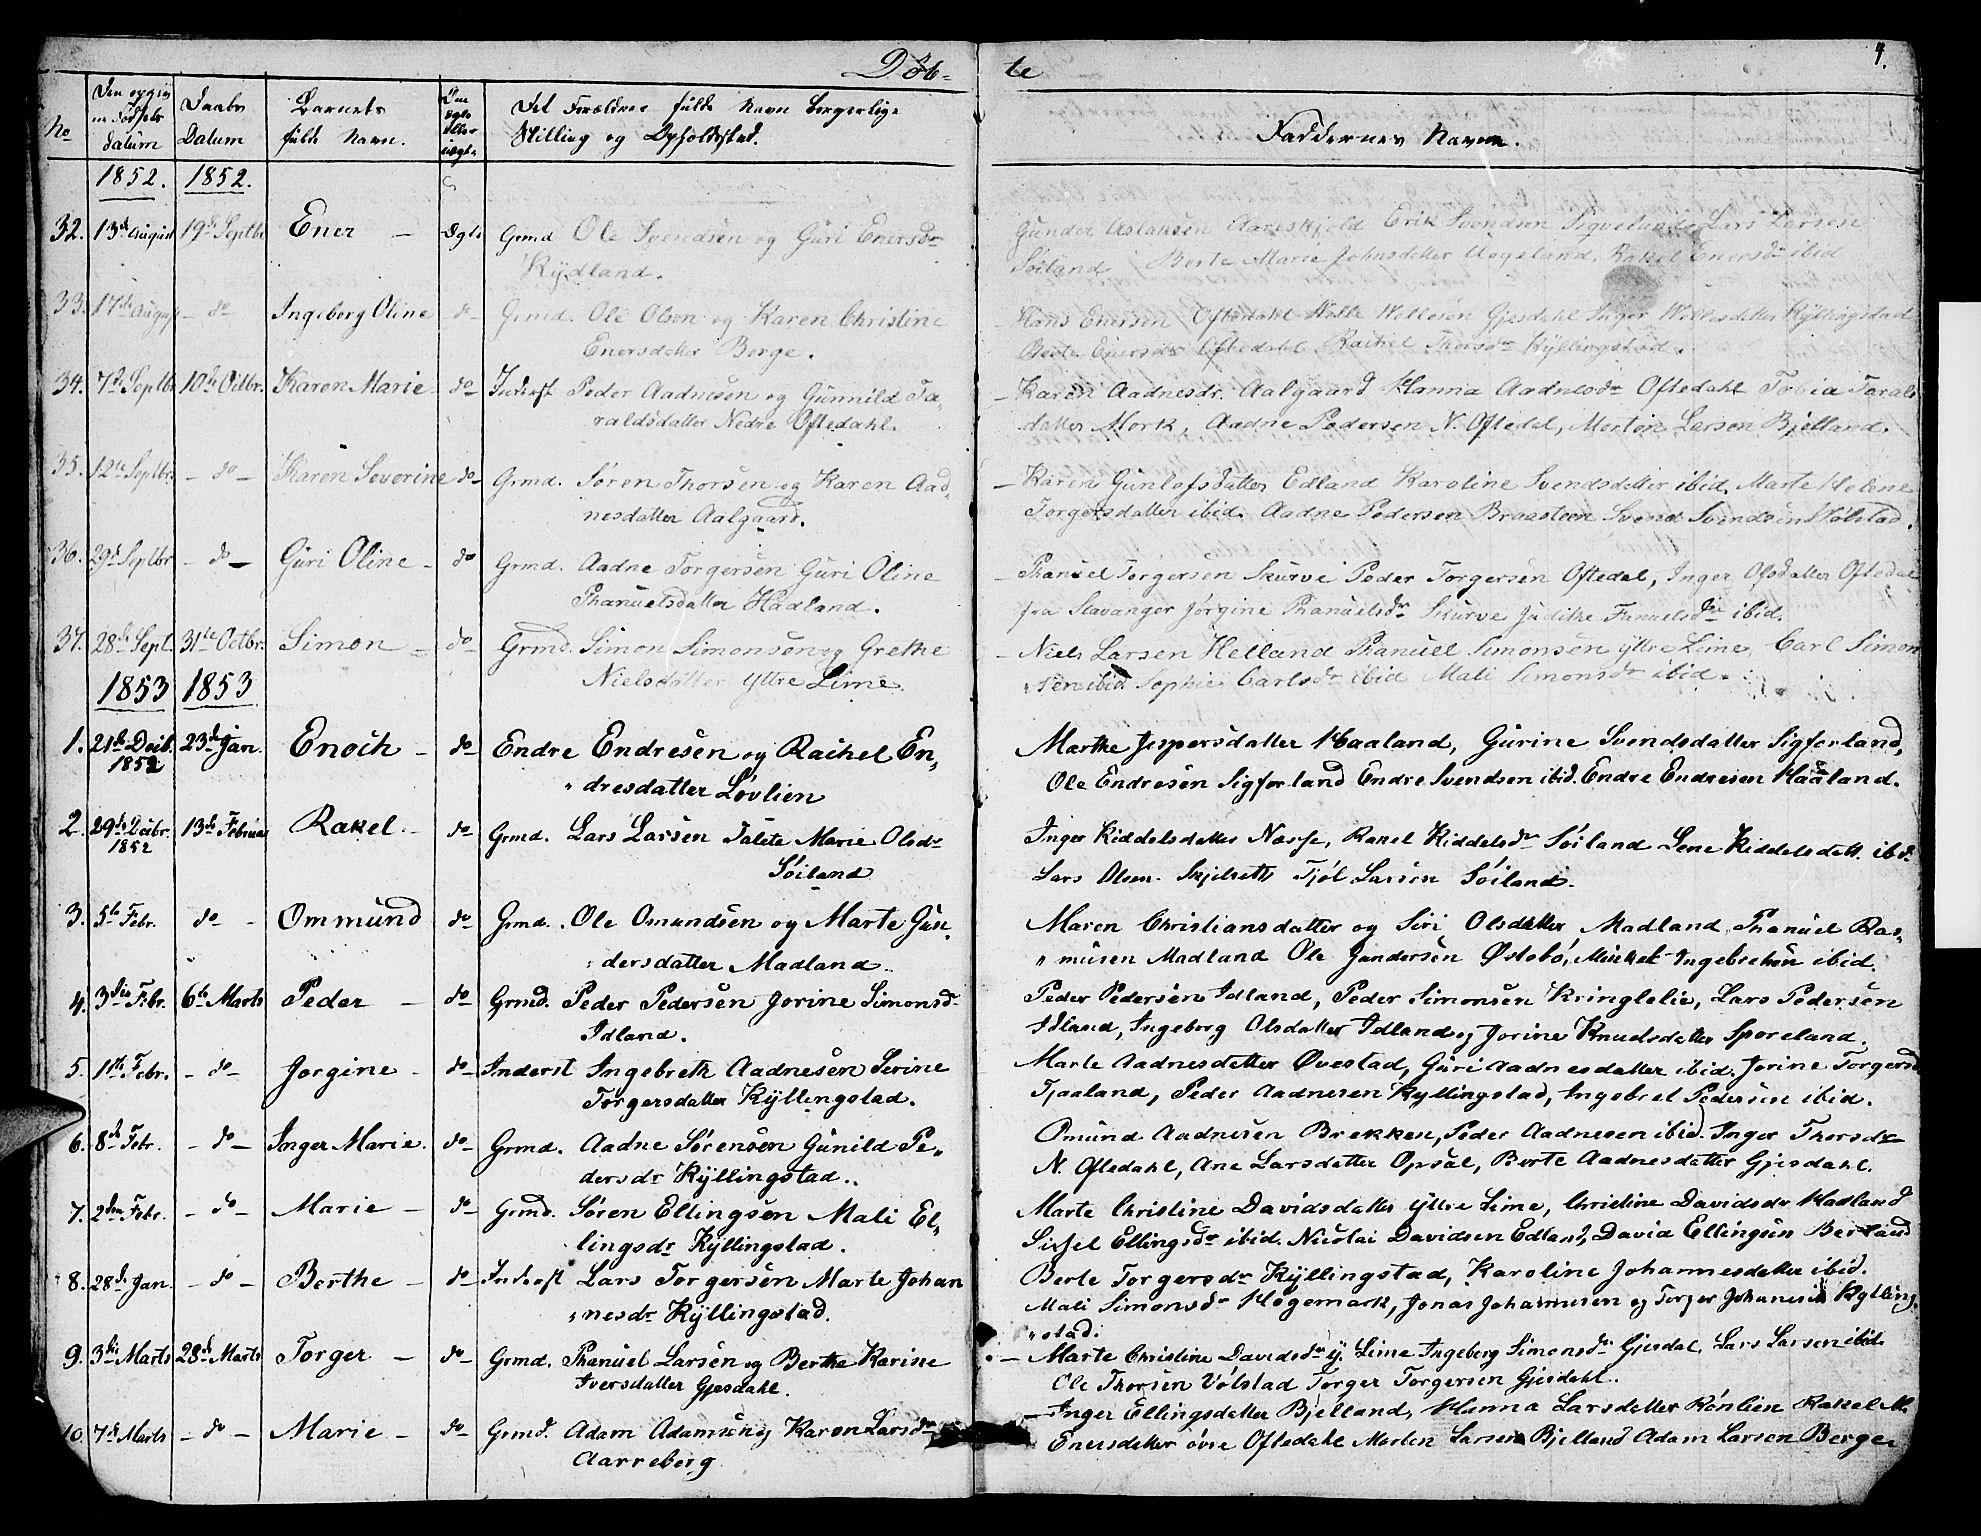 Døb- te 4.
No
Den opgivne Fødsels datum
Daabs Datum
Barnets fulde Navn.
Om egte eller uegte
Det Forældres fulde Navn borgerlige
Stilling og Opholdsstad.
Faddernes Navne.
1852. 1852.
32. 13de August 19de Septbr Ener - Egte Grmd Ole Svendsen og Guri Enersdr
Kydland.
Gunder Aslaksen Aareskjold Erik Svendsen Sigveland Lars Larsen
Søiland Berte Marie Johnsdatter Uegeland, Rakel Enersdr ibid
33. 17de August - do Ingeborg Oline do - Grmd. Ole Olsen og Karen Christine
Enersdatter Berge.
Hans Enersen Oftedahl Welle Wellesen Gjesdahl Inger Wellesdatter Kyllingstad
Berte Enersdr Oftedahl Rachel Thorsdr Kyllingstad.
34. 7de Septbr 10de Octbr. Karen Marie - do - Inderst Peder Aadnesen og Gunnild Ta-
raldsdatter Nedre Oftedahl.
Karen Aadnesdr. Aalgaard Hanna Aadnesdr Oftedahl Tobia Tarals
datter Mork, Aadne Pedersen N. Oftedal, Morten Larsen Bjelland.
35. 12te Septbr - do - Karen Severine do - Grmd. Søren Thorsen og Karen Aad-
nesdatter Aalgaard.
Karen Gunlofsdatter Edland Karoline Svendsdatter ibid. Marte Helene
Torgersdatter ibid. Aadne Pedersen Braasteen Svend Svendsen Hølstad.
36. 29de Septbr - do - Guri Oline - do Grmd. Aadne Torgersen Guri Oline
Phanuelsdatter Hadland.
Phanuel Torgersen Skurve Peder Torgersen Oftedal, Inger Olsdatter Oftedal
fra Stavanger Jørgine Phanuelsdr Skurve Judithe Fanuelsdr ibid.
37. 28de Sept. 31te Octbr. Simon - do - Grmd. Simon Simonsen og Grethe
Nielsdatter Yttre Lime.
Niels Larsen Helland Phanuel Simonsen yttre Lime, Carl Simon
sen ibid Sophie Carlsdr ibid Mali Simonsdr ibid.
1853 1853
1. 21de Decb. 1852 23de Jan. Enoch - do - Endre Endresen og Rachel En-
dresdatter Løvlien
Marthe Jespersdatter Haaland, Gurine Svendsdatter Sigforland,
Ole Endresen Sigforland Endre Svendsen ibid. Endre Endresen Haaland.
2. 29de Decbr. 1852 13de Februar Rakel - do - Grmd. Lars Larsen Talete Marie Olsdr
Søiland
Inger Kiddelsdatter Næsse, Rakel Kiddelsdr Søiland Lene Kiddelsdatt. ibd.
Lars Olsen Skjelsetts Tjøl Larsen Søiland.
3. 5te Febr. do - Ommund do - Grmd. Ole Omundsen og Marte Gun-
dersdatter Madland.
Maren Christiansdatter og Siri Olsdatter Madland Phanuel Ras-
musen Madland Ole Gundersen Østebø, Mikkel Ingebrethsen ibid.
4. 3die Febr. 6te Marts Peder - do - Grmd. Peder Pedersen Jorine Simonsd-
Idland.
Peder Pedersen Idland, Peder Simonsen Kringlelie, Lars Pedersen
Idland, Ingeborg Olsdatter Idland og Jorine Knudsdatter Sporeland.
5. 1ste Febr. - do - Jorgine - do - Inderst Ingebreth Aadnesen Serine
Torgersdatter Kyllingstad.
Marte Aadnesdatter Øvestad, Guri Aadnesdatter ibid. Jorine Torgersd
Tjaaland, Peder Aadnesen Kyllingstad, Ingebret Pedersen ibid.
6. 8de Febr. - do - Inger Marie. do - Grmd. Aadne Sørensen Gunild Pe-
dersdr Kyllingstad.
Omund Aadnesen Brekken, Peder Aadnesen ibid. Inger Thorsdr
N. Oftedahl, Ane Larsdatter Opsal, Berte Aadnesdatter Gjesdahl.
7. 2den Febr. - do - Marie - do - Grmd. Søren Ellingsen Mali El-
lingsdr Kyllingstad.
Marte Christine Davidsdatter yttre Lime, Christine Davidsdr Madland
Sissel Ellingsdr ibid. Nicolai Davidsen Edland, David Ellingsen Berland
8. 28de Jan. - do - Berthe - do - Inderst Lars Torgersen Marte Johan
nesdr Kyllingstad.
Berte Torgersdr Kyllingstad, Karoline Johannesdatter ibid.
Mali Simonsdr Høgemark, Jonas Johannesen og Torger Johanesen Kylling-
stad.
9. 3die Marts 28de Marts Torger - do - Grmd. Phanuel Larsen og Berthe Karine
Iversdatter Gjesdahl.
Marte Christine Davidsdr y. Lime Ingeborg Simonsdr Gjesdal, Lars Larsen ibid.
Ole Thorsen Vølstad Torger Torgersen Gjesdahl.
10. 7de Marts - do - Marie - do - Grmd. Adam Adamsen og Karen Larsdr
Aarreberg
Inger Ellingsdatter Bjelland, Hanna Larsdatter Rønlien Rakel M.
Enersdatter øvre Oftedahl Morten Larsen Bjelland Adam Larsen Berge.